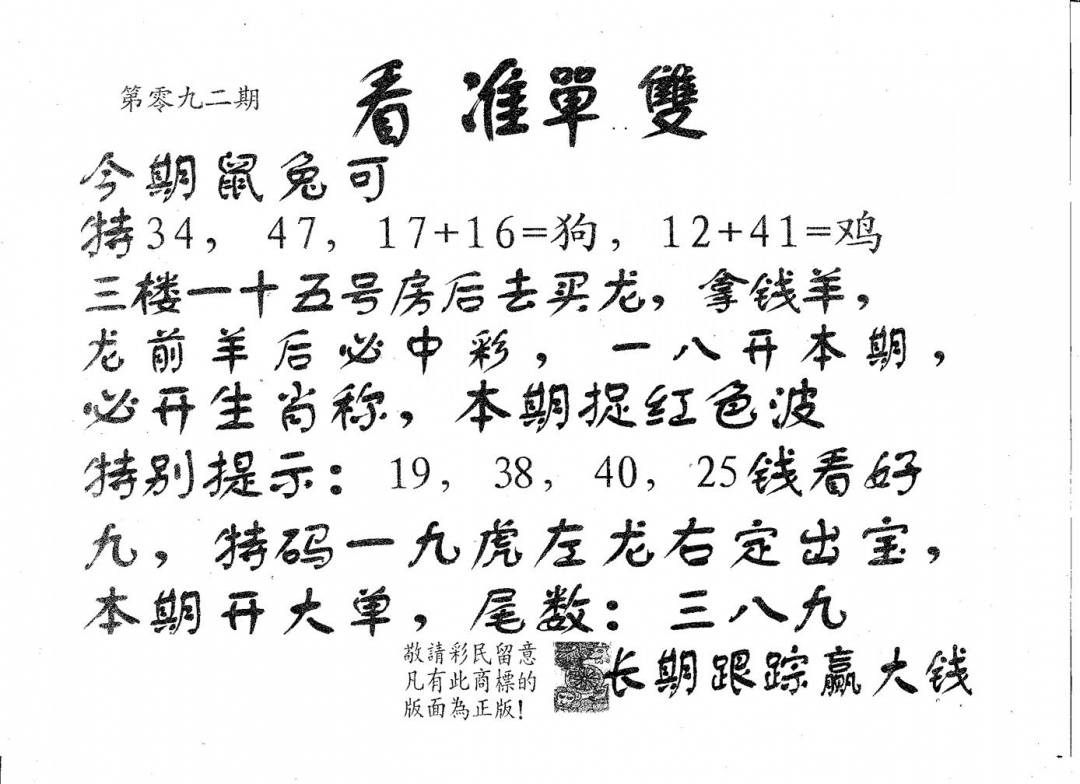 第零九二期
看准單雙
今期鼠兔可
特34, 47, 17+16=狗, 12+41=鸡
三楼一十五号房后去买龙, 拿钱羊,
龙前羊后必中彩, 一八开本期,
必开生肖称, 本期捉红色波
特别提示: 19, 38, 40, 25钱看好
九, 特码一九虎左龙右定出宝,
本期开大单, 尾数: 三八九
敬請彩民留意
凡有此商標的
版面為正版!
长期跟踪赢大钱